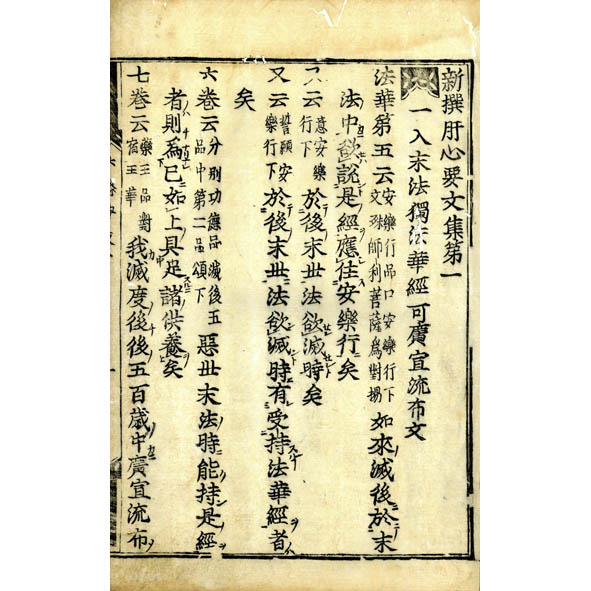 新撰肝心要文集第一
一入末法獨法華經可廣宣流布文
法華第五云安樂行品口安樂行下文殊師利菩薩爲對揚如來滅後於末
法中欲說是經應住安樂行矣
又云意安樂行下於後末世法欲滅時矣
又云誓願安樂行下於後末世法欲滅時有受持法華經者
矣
六卷云分別功德品滅後五品中第二品頌下惡世末法時能持是經
者則爲已如上具足諸供養矣
七卷云藥王品對宿王華我滅度後後五百歲中廣宣流布